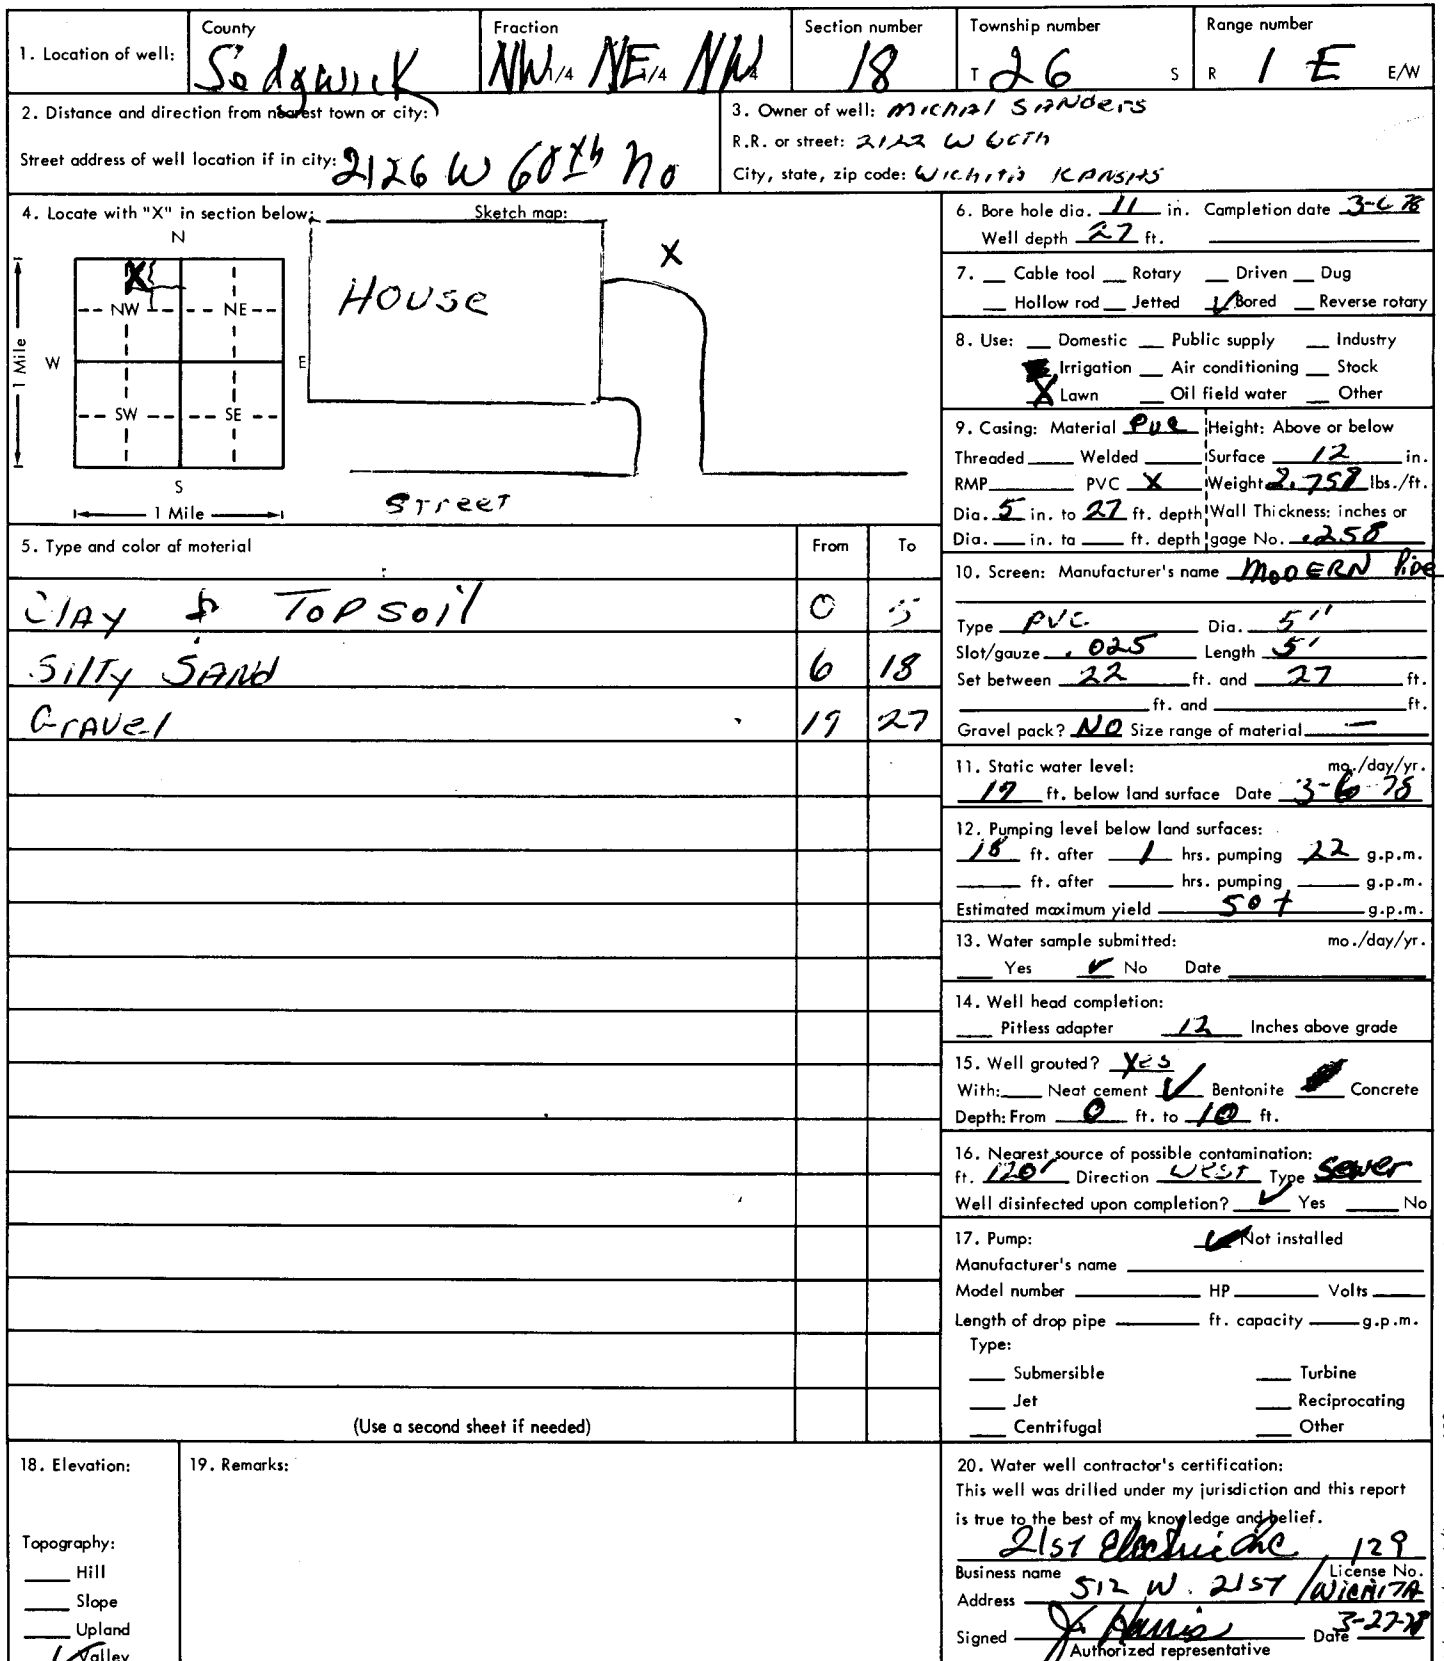 1. Location of well: County Sedgwick Fraction NW 1/4 NE 1/4 NW 1/4 Section number 18 Township number T 26 S Range number R 1 E E/W
2. Distance and direction from nearest town or city:
Street address of well location if in city: 2126 W 60th No
3. Owner of well: Michal Sanders
R.R. or street: 2122 W 60th
City, state, zip code: Wichita Kansas
4. Locate with "X" in section below: Sketch map:
N
X
NW NE
W E
SW SE
S
1 Mile
1 Mile
House
X
Street
5. Type and color of material From To
Clay & Topsoil 0 5
Silty Sand 6 18
Gravel 19 27
(Use a second sheet if needed)
6. Bore hole dia. 11 in. Completion date 3-6 78
Well depth 27 ft.
7. Cable tool Rotary Driven Dug
Hollow rod Jetted ✓ Bored Reverse rotary
8. Use: Domestic Public supply Industry
Irrigation Air conditioning Stock
X Lawn Oil field water Other
9. Casing: Material PVC Height: Above or below
Threaded Welded Surface 12 in.
RMP PVC X Weight 2.758 lbs./ft.
Dia. 5 in. to 27 ft. depth Wall Thickness: inches or
Dia. in. to ft. depth gage No. .258
10. Screen: Manufacturer's name MODERN Pipe
Type PVC Dia. 5"
Slot/gauze .025 Length 5'
Set between 22 ft. and 27 ft.
ft. and ft.
Gravel pack? NO Size range of material —
11. Static water level: mo./day/yr.
17 ft. below land surface Date 3-6-78
12. Pumping level below land surfaces:
18 ft. after 1 hrs. pumping 22 g.p.m.
ft. after hrs. pumping g.p.m.
Estimated maximum yield 50+ g.p.m.
13. Water sample submitted: mo./day/yr.
Yes ✓ No Date
14. Well head completion:
Pitless adapter 12 Inches above grade
15. Well grouted? Yes
With: Neat cement ✓ Bentonite Concrete
Depth: From 0 ft. to 10 ft.
16. Nearest source of possible contamination:
ft. 120' Direction West Type Sewer
Well disinfected upon completion? ✓ Yes No
17. Pump: ✓ Not installed
Manufacturer's name
Model number HP Volts
Length of drop pipe ft. capacity g.p.m.
Type:
Submersible Turbine
Jet Reciprocating
Centrifugal Other
18. Elevation:
Topography:
Hill
Slope
Upland
✓ Valley
19. Remarks:
20. Water well contractor's certification:
This well was drilled under my jurisdiction and this report
is true to the best of my knowledge and belief.
21st Electric Inc 129
Business name License No.
Address 512 W. 21st / Wichita
Signed J. Harris Date 3-27-78
Authorized representative